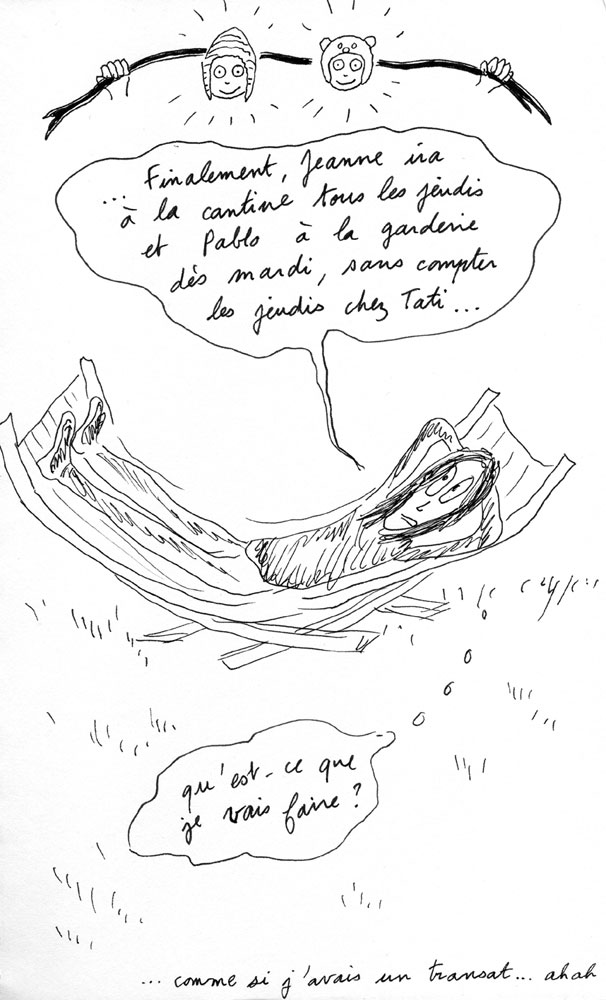 ... Finalement, Jeanne ira
à la cantine tous les jeudis
et Pablo à la garderie
dès mardi, sans compter
les jeudis chez Tati...
qu'est-ce que
je vais faire?
... comme si j'avais un transat... ahah